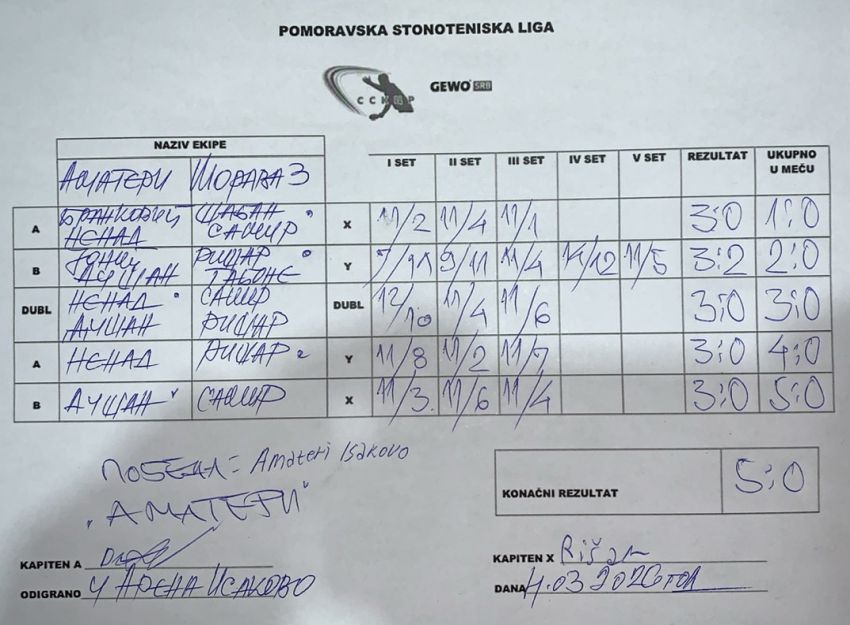 POMORAVSKA STONOTENISKA LIGA
GEWO SRB
NAZIV EKIPE
I SET II SET III SET IV SET V SET REZULTAT UKUPNO U MEČU
АМАТЕРИ МОРАВА 3
A БРАНКОВИЋ НЕНАД ШАБАН САМИР X 11/2 11/4 11/1 3:0 1:0
B ДУШАН РИШАР ТАБОНЕ Y 7/11 9/11 11/4 14/12 11/5 3:2 2:0
DUBL НЕНАД ДУШАН САМИР РИШАР DUBL 12/10 11/4 11/6 3:0 3:0
A НЕНАД РИШАР Y 11/8 11/2 11/7 3:0 4:0
B ДУШАН САМИР X 11/3 11/6 11/4 3:0 5:0
ПОБЕДА = Amateri Isakovo
"АМАТЕРИ"
KONAČNI REZULTAT 5:0
KAPITEN A
KAPITEN X Rišar
ODIGRANO У АРЕНА ИСАКОВО
DANA 4.03 2026 ГОД